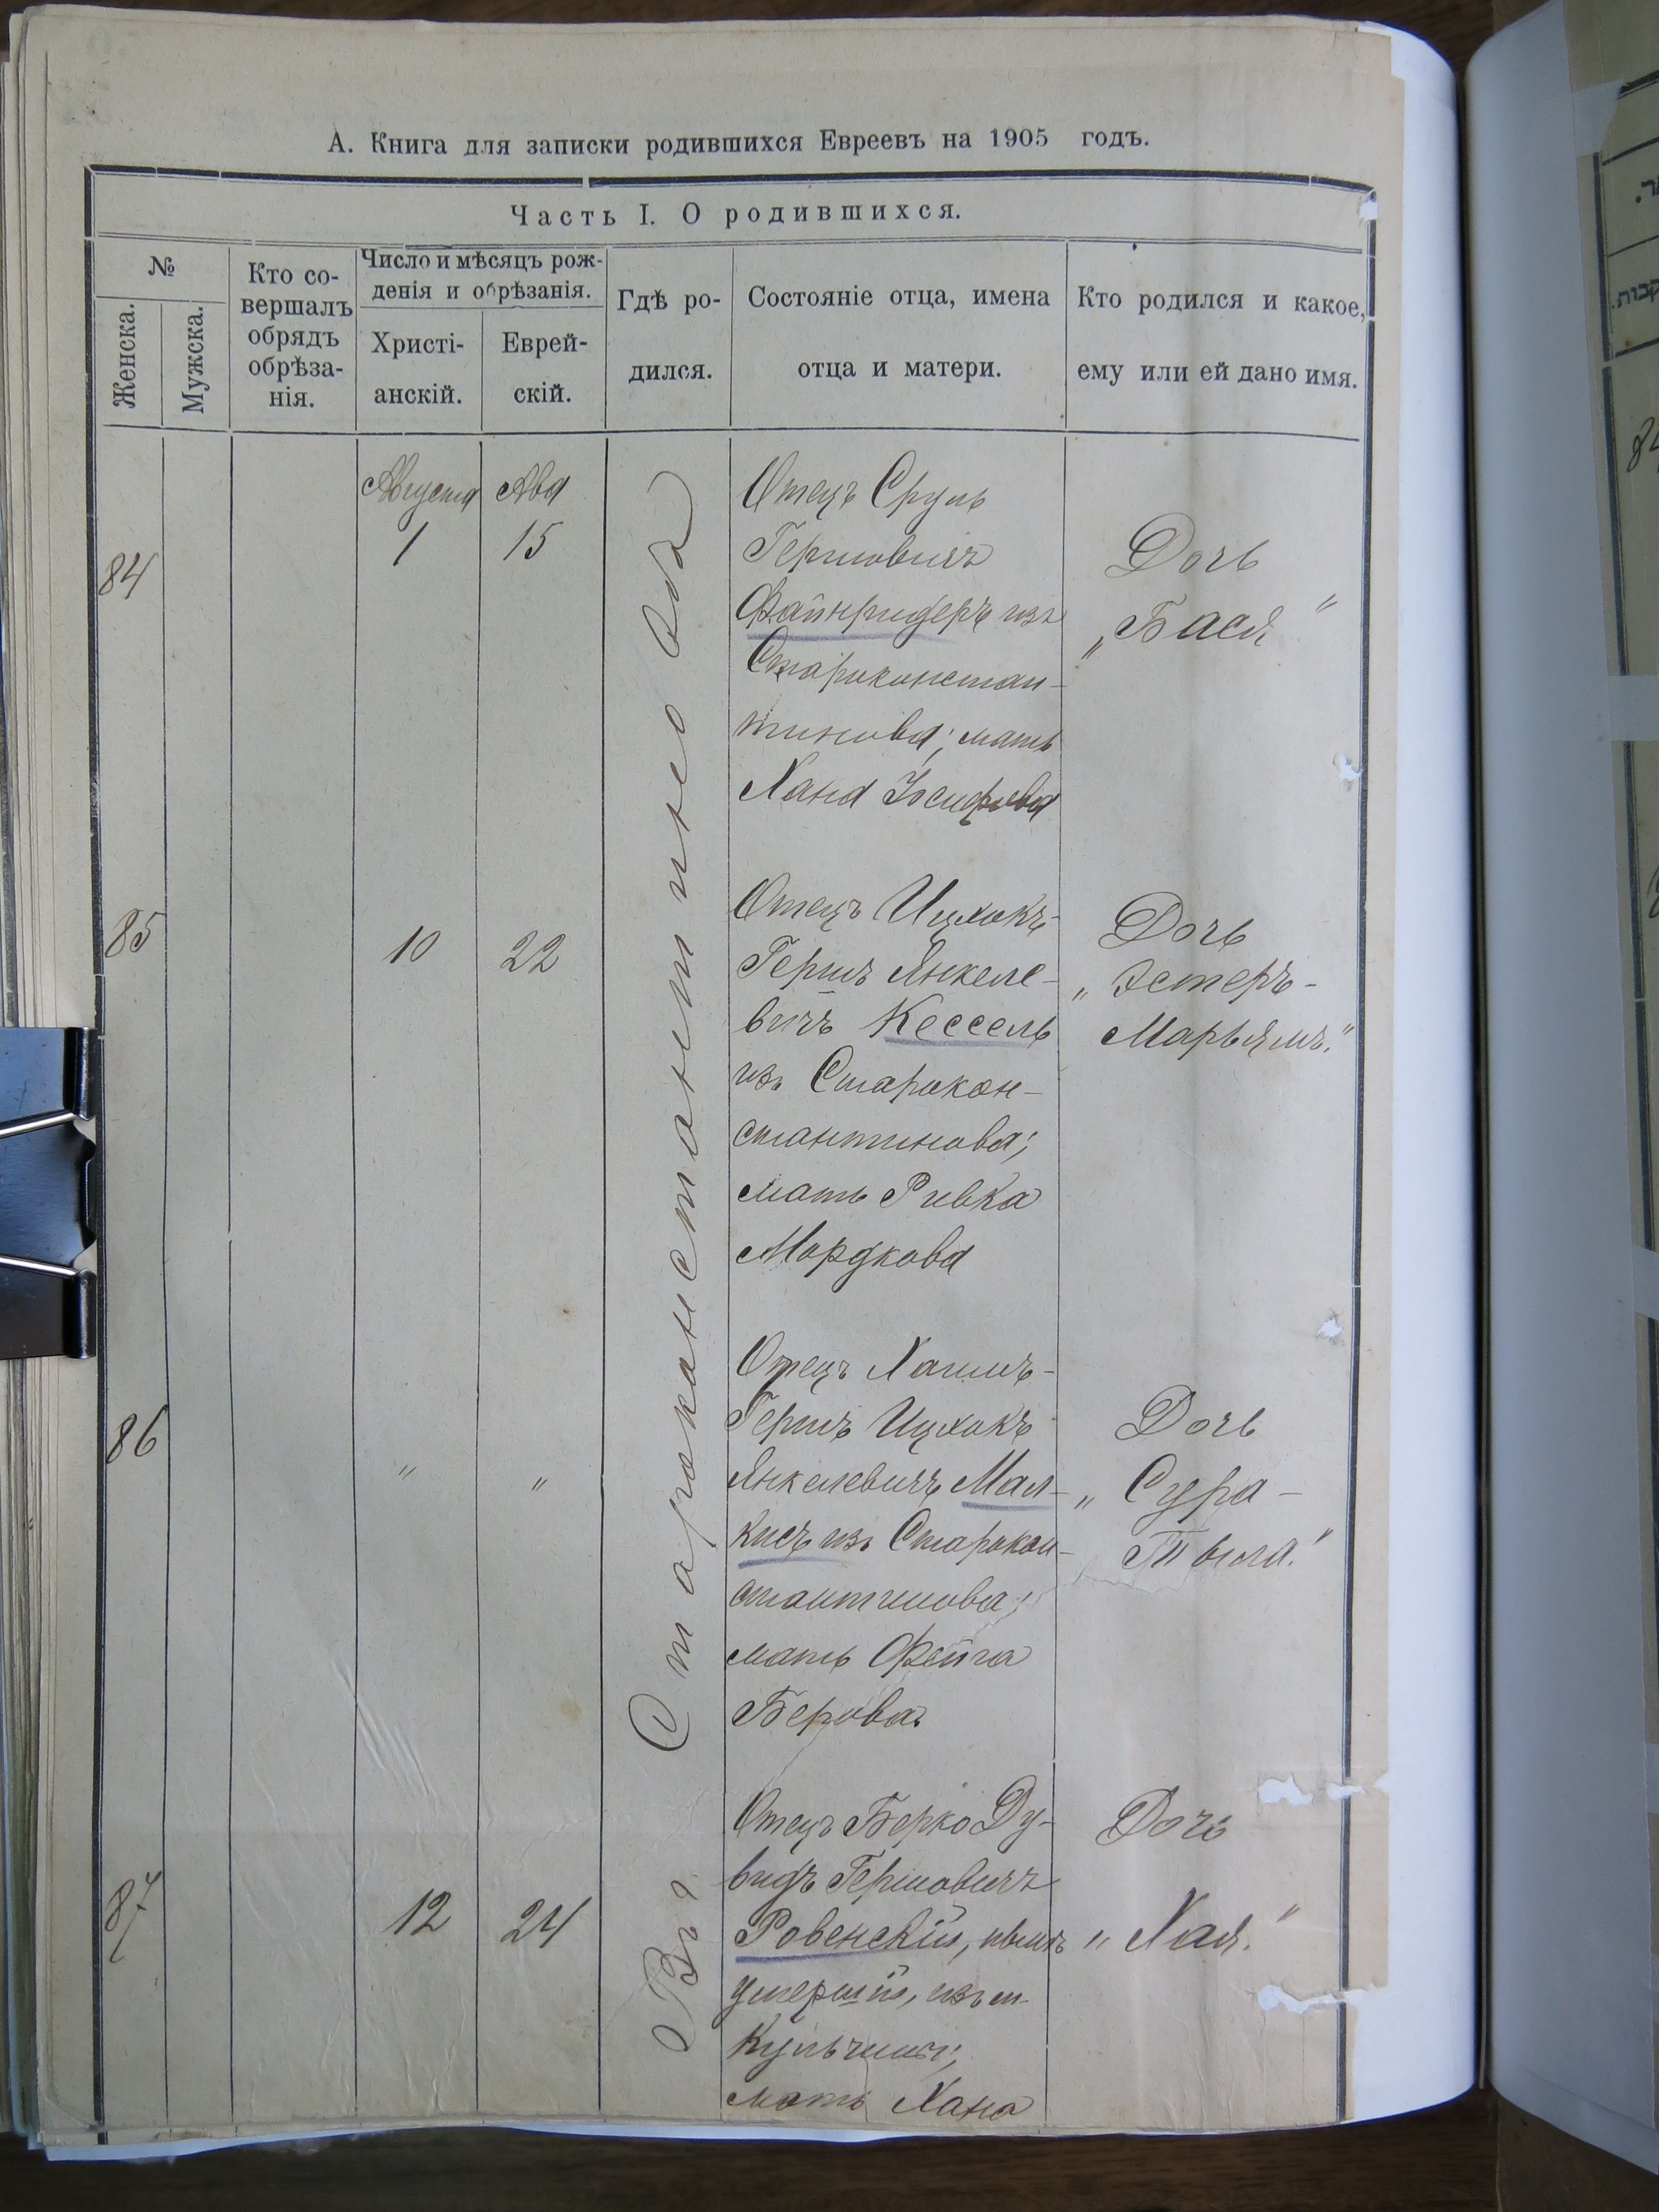 А. Книга для записки родившихся Евреевъ на 1905 годъ.
Часть I. О родившихся.
№
Женска.
Мужска.
Кто со-
вершалъ
обрядъ
обрѣза-
нія.
Число и мѣсяцъ рож-
денія и обрѣзанія.
Христі-
анскій.
Еврей-
скій.
Гдѣ ро-
дился.
Состояніе отца, имена
отца и матери.
Кто родился и какое,
ему или ей дано имя.
Въ г. Староконстантиновѣ
84
Августа
1
Ава
15
Отецъ Сруль
Гершовичъ
Файнридеръ изъ
Староконстан-
тинова; мать
Хана Іосифова
Дочь
„Бася"
85
10
22
Отецъ Ицхокъ-
Гершъ Янкеле-
вичъ Кессель
изъ Старокон-
стантинова;
мать Ривка
Мордкова
Дочь
„Эстеръ-
Марьямъ."
86
"
"
Отецъ Хаимъ-
Гершъ Ицхокъ
Янкелевичъ Мал-
кисъ изъ Старокон-
стантинова;
мать Фейга
Берова
Дочь
„Сура-
Тыла."
87
12
24
Отецъ Берко Ду-
видъ Гершовичъ
Ровенскій, нынѣ
умершій, изъ м.
Кульчины;
мать Хана
Дочь
„Хая."
84